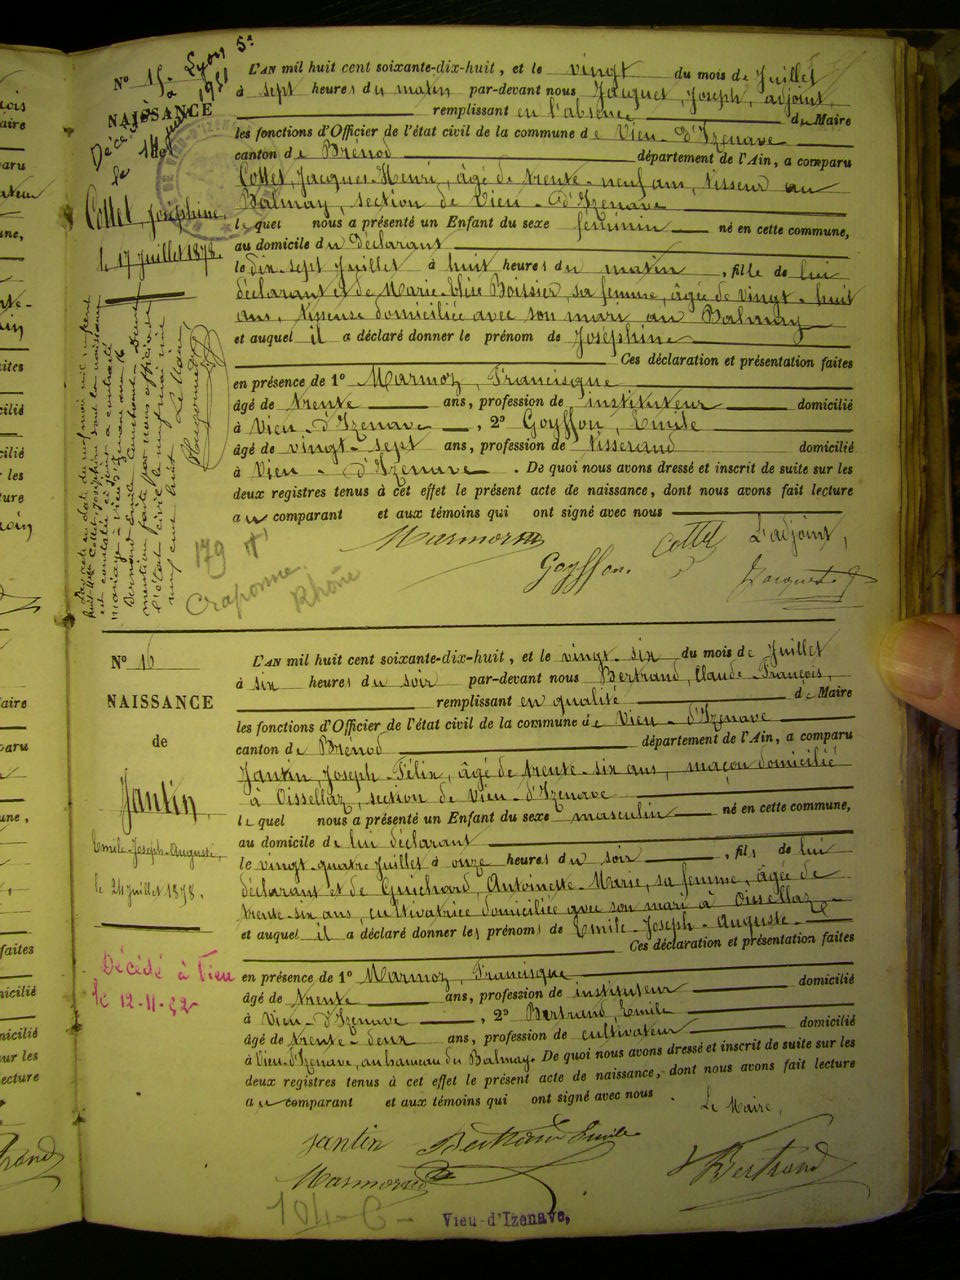 N° 15
NAISSANCE
Décédée à Lyon 5e
le 1951
Collet, Joséphine,
le 17 Juillet 1878.
L'AN mil huit cent soixante-dix-huit, et le vingt du mois de Juillet
à sept heures du matin par-devant nous Jacquet, Joseph, adjoint,
remplissant en l'absence du Maire
les fonctions d'Officier de l'état civil de la commune de Vieu-d'Izenave
canton de Brénod département de l'Ain, a comparu
Collet, Jacques-Henri, âgé de trente-neuf ans, tisseur au
Balmay, section de Vieu-d'Izenave
lequel nous a présenté un Enfant du sexe féminin né en cette commune,
au domicile du déclarant
le dix-sept Juillet à huit heures du matin, fille de lui
déclarant et de Marie-Élise Boissier, sa femme, âgée de vingt-huit
ans, tisseuse domiciliée avec son mari au Balmay
et auquel il a déclaré donner le prénom de Joséphine
Ces déclaration et présentation faites
en présence de 1° Marmoz, Francisque
âgé de trente ans, profession de instituteur domicilié
à Vieu-d'Izenave, 2° Goyffon, Emile
âgé de vingt-sept ans, profession de Tisserand domicilié
à Vieu-d'Izenave. De quoi nous avons dressé et inscrit de suite sur les
deux registres tenus à cet effet le présent acte de naissance, dont nous avons fait lecture
au comparant et aux témoins qui ont signé avec nous
Marmoz Collet L'adjoint,
Goyffon. Jacquet J
179
Craponne
Rhône
N° 16
NAISSANCE
de
Jantin,
Emile-Joseph-Auguste,
le 24 Juillet 1878.
Décédé à Vieu
le 12-11-52
L'AN mil huit cent soixante-dix-huit, et le vingt-six du mois de Juillet
à six heures du soir par-devant nous Bertrand, Claude-François,
remplissant en qualité de Maire
les fonctions d'Officier de l'état civil de la commune de Vieu-d'Izenave
canton de Brénod département de l'Ain, a comparu
Jantin, Joseph-Félix, âgé de trente-six ans, maçon domicilié
à Oissellaz, section de Vieu-d'Izenave
lequel nous a présenté un Enfant du sexe masculin né en cette commune,
au domicile de lui déclarant
le vingt-quatre Juillet à onze heures du soir, fils de lui
déclarant et de Guichard, Antoinette-Marie, sa femme, âgée de
trente-six ans, cultivatrice domiciliée avec son mari à Oissellaz
et auquel il a déclaré donner les prénoms de Emile-Joseph-Auguste
Ces déclaration et présentation faites
en présence de 1° Marmoz, Francisque domicilié
âgé de trente ans, profession de instituteur
à Vieu-d'Izenave, 2° Bertrand, Emile
âgé de trente-deux ans, profession de cultivateur domicilié
à Vieu-d'Izenave, au hameau du Balmay. De quoi nous avons dressé et inscrit de suite sur les
deux registres tenus à cet effet le présent acte de naissance, dont nous avons fait lecture
au comparant et aux témoins qui ont signé avec nous.
Le Maire,
Jantin Bertrand Emile
Marmoz Bertrand
104-C-
Vieu-d'Izenave,